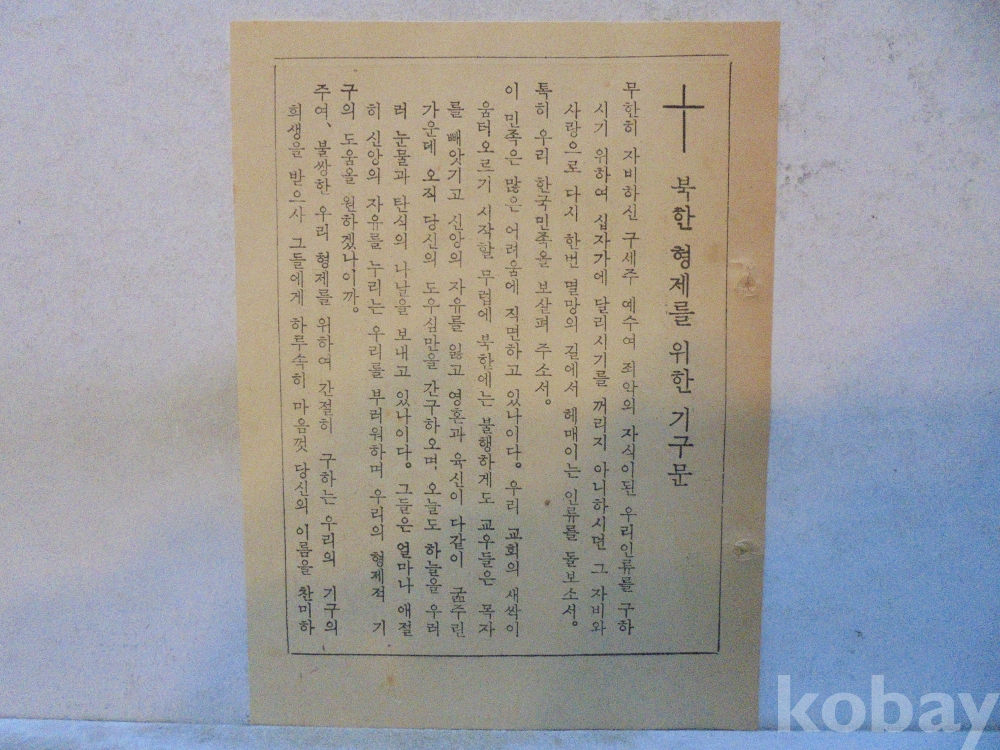 북한 형제를 위한 기구문
무한히 자비하신 구세주 예수여 죄악의 자식이된 우리인류를 구하
시기 위하여 십자가에 달리시기를 꺼리지 아니하시던 그 자비와
사랑으로 다시 한번 멸망의 길에서 헤매이는 인류를 돌보소서.
특히 우리 한국민족을 보살펴 주소서.
이 민족은 많은 어려움에 직면하고 있나이다. 우리 교회의 새싹이
움터오르기 시작할 무렵에 북한에는 불행하게도 교우들은 목자
를 빼앗기고 신앙의 자유를 잃고 영혼과 육신이 다같이 굶주린
가운데 오직 당신의 도우심만을 간구하오며, 오늘도 하늘을 우러
러 눈물과 탄식의 나날을 보내고 있나이다. 그들은 얼마나 애절
히 신앙의 자유를 누리는 우리를 부러워하며 우리의 형제적 기
구의 도움을 원하겠나이까.
주여, 불쌍한 우리 형제를 위하여 간절히 구하는 우리의 기구의
희생을 받으사 그들에게 하루속히 마음껏 당신의 이름을 찬미하
kobay